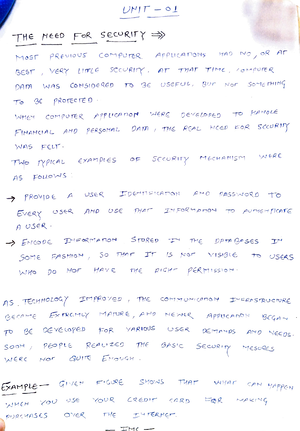 UNIT - 01
THE NEED FOR SECURITY ⇒
MOST PREVIOUS COMPUTER APPLICATIONS HAD NO, OR AT
BEST, VERY LITTLE SECURITY. AT THAT TIME, COMPUTER
DATA WAS CONSIDERED TO BE USEFUL, BUT NOT SOMETHING
TO BE PROTECTED.
WHEN COMPUTER APPLICATION WERE DEVELOPED TO HANDLE
FINANCIAL AND PERSONAL DATA, THE REAL NEED FOR SECURITY
WAS FELT.
TWO TYPICAL EXAMPLES OF SECURITY MECHANISM WERE
AS FOLLOWS:
→ PROVIDE A USER IDENTIFICATION AND PASSWORD TO
EVERY USER AND USE THAT INFORMATION TO AUTHENTICATE
A USER.
→ ENCODE INFORMATION STORED IN THE DATABASES IN
SOME FASHION, SO THAT IT IS NOT VISIBLE TO USERS
WHO DO NOT HAVE THE RIGHT PERMISSION.
AS TECHNOLOGY IMPROVED, THE COMMUNICATION INFRASTRUCTURE
BECAME EXTREMELY MATURE, AND NEWER APPLICATION BEGAN
TO BE DEVELOPED FOR VARIOUS USER DEMANDS AND NEEDS.
SOON, PEOPLE REALIZED THE BASIC SECURITY MESURES
WERE NOT QUITE ENOUGH.
EXAMPLE— GIVEN FIGURE SHOWS THAT WHAT CAN HAPPEN
WHEN YOU USE YOUR CREDIT CARD FOR MAKING
PURCHASES OVER THE INTERNET.